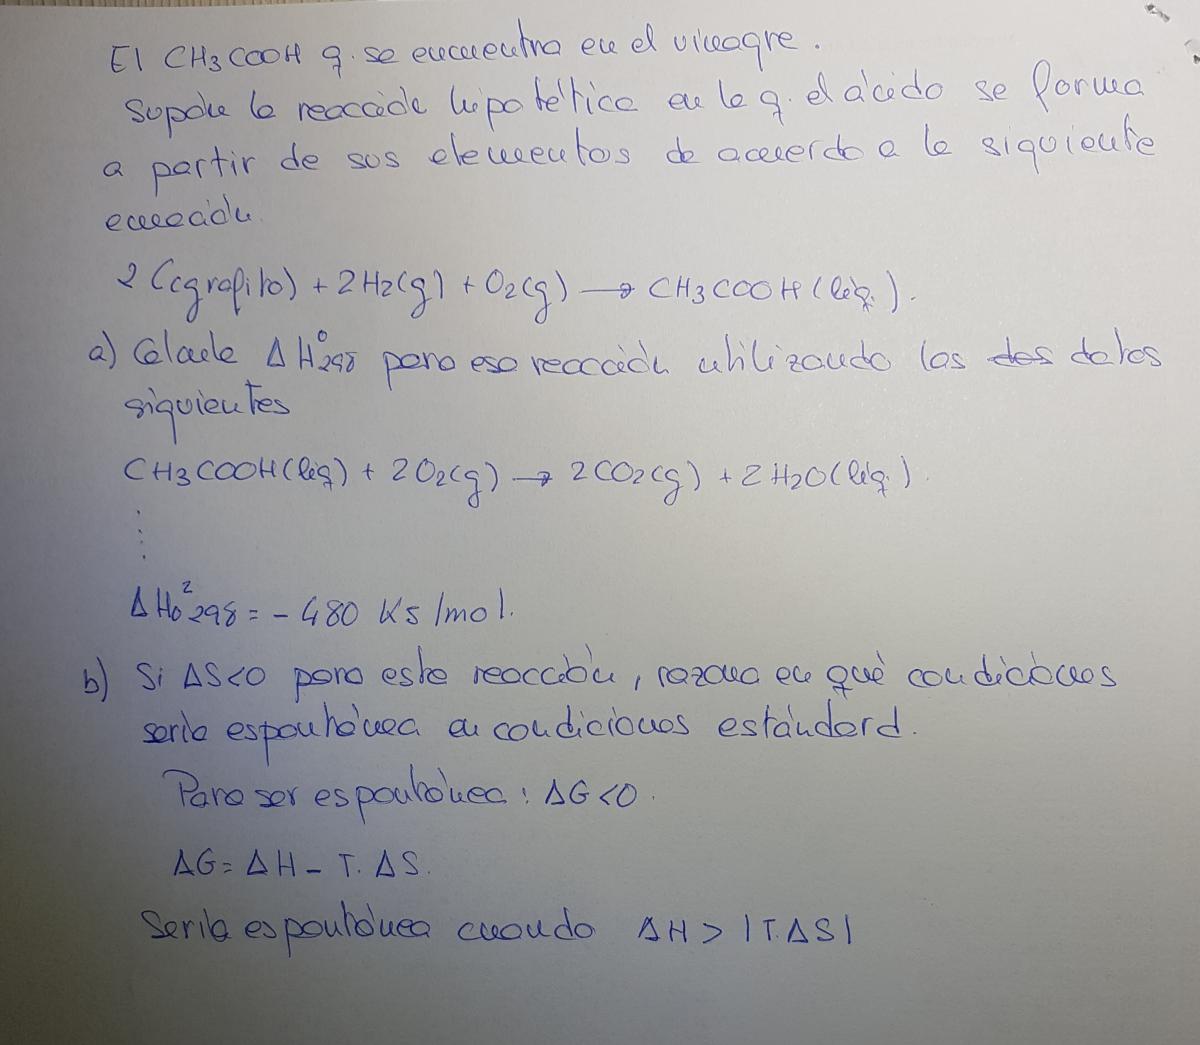 El CH3COOH q. se encuentra en el vinagre.
Supón la reacción hipotética en la q. el ácido se forma
a partir de sus elementos de acuerdo a la siguiente
ecuación.
2 C(grafito) + 2H2(g) + O2(g) → CH3COOH (líq.).
a) Calcule ΔH°298 para esa reacción utilizando los dos datos
siguientes
CH3COOH(líq) + 2O2(g) → 2CO2(g) + 2H2O(líq.).
⋮
ΔHo²298 = - 480 KJ/mol.
b) Si ΔS<0 para esta reacción, razona en qué condiciones
sería espontánea en condiciones estándard.
Para ser espontánea: ΔG<0.
ΔG = ΔH - T.ΔS.
Sería espontánea cuando ΔH > |T.ΔS|